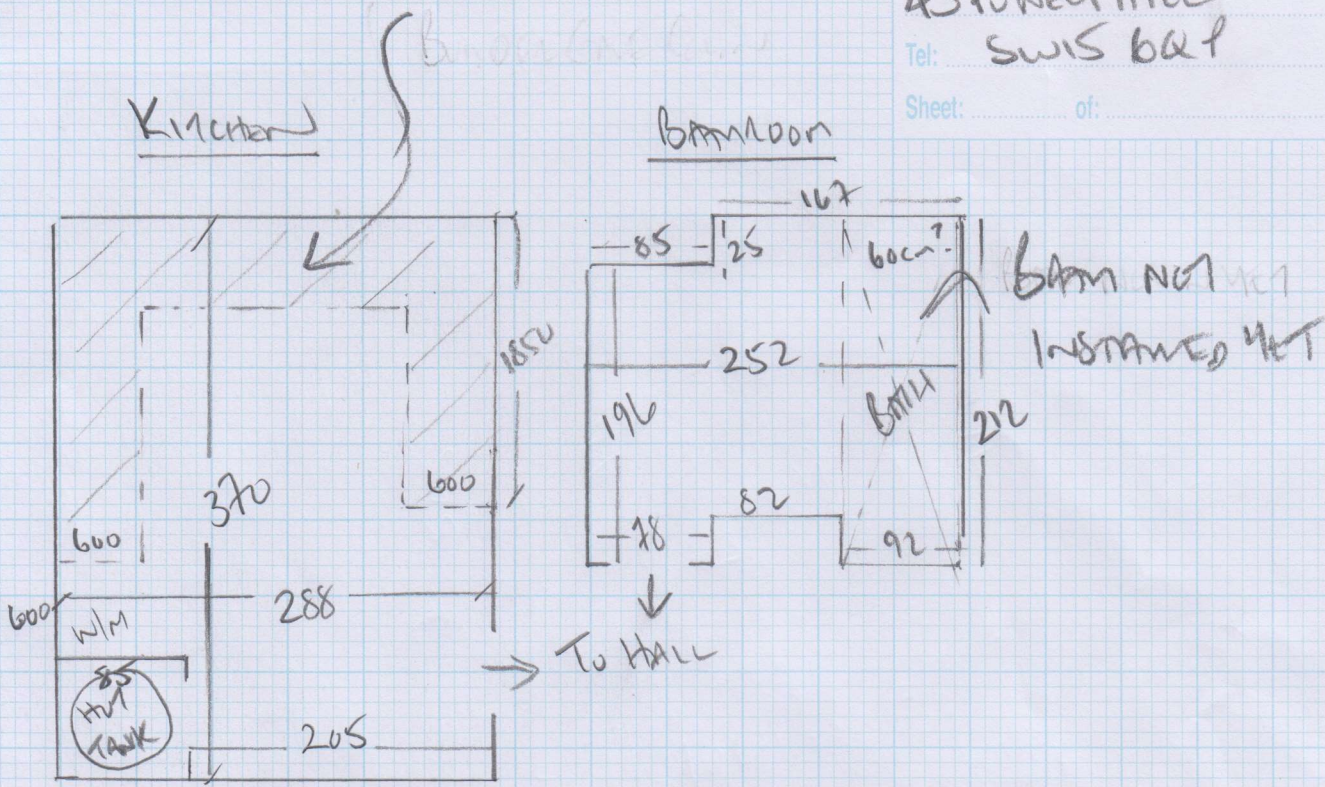 Tel: SW15 6QP
Sheet: of:
KITCHEN
BATHROOM
167
85
25
60cm?
BATH NOT
INSTALLED YET
1850
252
BATH
196
212
370
600
600
82
78
92
600
288
W/M
TO HALL
85
HOT
TANK
205